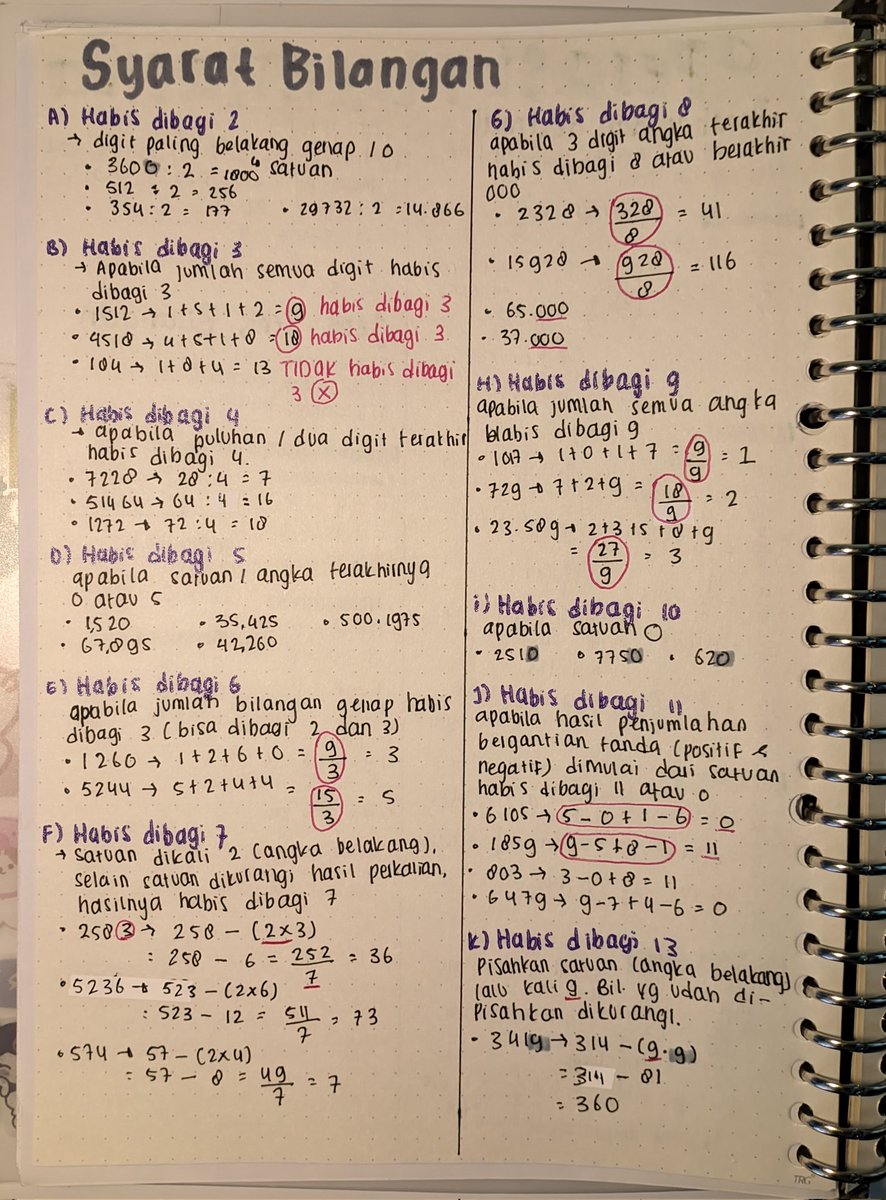 Syarat Bilangan
A) Habis dibagi 2
→ digit paling belakang genap / 0
• 3600 : 2 = 1800 satuan
• 512 : 2 = 256
• 354 : 2 = 177 • 29732 : 2 = 14.866
B) Habis dibagi 3
→ Apabila jumlah semua digit habis
dibagi 3
• 1512 → 1+5+1+2 = 9 habis dibagi 3
• 4518 → 4+5+1+8 = 18 habis dibagi 3
• 184 → 1+8+4 = 13 TIDAK habis dibagi
3 X
C) Habis dibagi 4
→ apabila puluhan / dua digit terakhir
habis dibagi 4.
• 7228 → 28 : 4 = 7
• 51464 → 64 : 4 = 16
• 1272 → 72 : 4 = 18
D) Habis dibagi 5
apabila satuan / angka terakhirnya
0 atau 5
• 1,520 • 35,425 • 500.1975
• 67,895 • 42,260
E) Habis dibagi 6
apabila jumlah bilangan genap habis
dibagi 3 (bisa dibagi 2 dan 3)
• 1260 → 1+2+6+0 = 9/3 = 3
• 5244 → 5+2+4+4 = 15/3 = 5
F) Habis dibagi 7
→ satuan dikali 2 (angka belakang),
selain satuan dikurangi hasil perkalian,
hasilnya habis dibagi 7
• 2583 → 258 - (2×3)
: 258 - 6 = 252/7 = 36
• 5236 → 523 - (2×6)
: 523 - 12 = 511/7 = 73
• 574 → 57 - (2×4)
= 57 - 8 = 49/7 = 7
G) Habis dibagi 8
apabila 3 digit angka terakhir
habis dibagi 8 atau berakhir
000
• 2328 → 328/8 = 41
• 15928 → 928/8 = 116
• 65.000
• 37.000
H) Habis dibagi 9
apabila jumlah semua angka
blabis dibagi 9
• 1017 → 1+0+1+7 = 9/9 = 1
• 729 → 7+2+9 = 18/9 = 2
• 23.589 → 2+3+5+8+9
= 27/9 = 3
i) Habis dibagi 10
apabila satuan 0
• 2510 • 7750 • 620
J) Habis dibagi 11
apabila hasil penjumlahan
bergantian tanda (positif &
negatif) dimulai dari satuan
habis dibagi 11 atau 0
• 6105 → 5-0+1-6 = 0
• 1859 → 9-5+8-1 = 11
• 803 → 3-0+8 = 11
• 6479 → 9-7+4-6 = 0
K) Habis dibagi 13
Pisahkan satuan (angka belakang)
lalu kali 9. Bil. yg udah di-
pisahkan dikurangi.
• 3419 → 314 - (9.9)
= 314 - 81
= 360
TRG